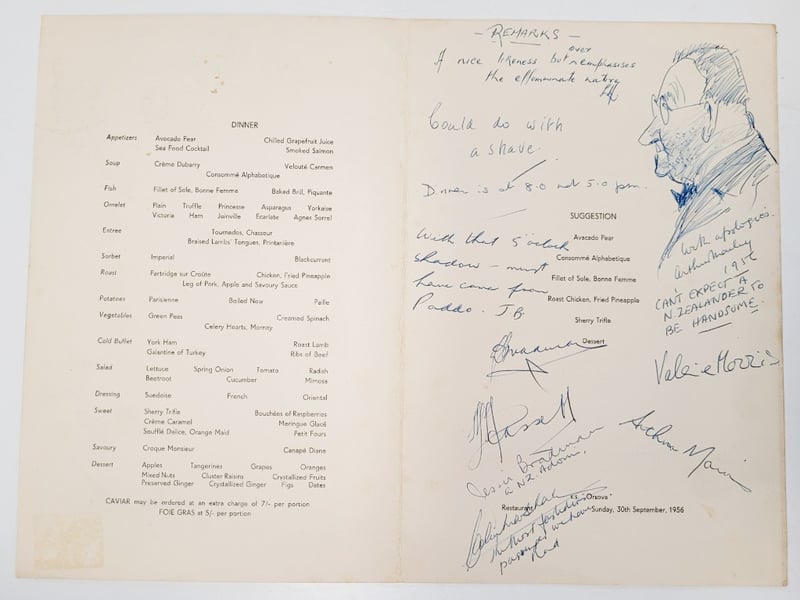 DINNER
Appetizers Avocado Pear Chilled Grapefruit Juice
Sea Food Cocktail Smoked Salmon
Soup Crème Dubarry Velouté Carmen
Consommé Alphabetique
Fish Fillet of Sole, Bonne Femme Baked Brill, Piquante
Omelet Plain Truffle Princesse Asparagus Yorkaise
Victoria Ham Joinville Ecarlate Agnes Sorrel
Entree Tournedos, Chasseur
Braised Lambs' Tongues, Printanière
Sorbet Imperial Blackcurrant
Roast Partridge sur Croûte Chicken, Fried Pineapple
Leg of Pork, Apple and Savoury Sauce
Potatoes Parisienne Boiled New Paille
Vegetables Green Peas Creamed Spinach
Celery Hearts, Mornay
Cold Buffet York Ham Roast Lamb
Galantine of Turkey Ribs of Beef
Salad Lettuce Spring Onion Tomato Radish
Beetroot Cucumber Mimosa
Dressing Suedoise French Oriental
Sweet Sherry Trifle Bouchées of Raspberries
Crème Caramel Meringue Glacé
Soufflé Delice, Orange Maid Petit Fours
Savoury Croque Monsieur Canapé Diane
Dessert Apples Tangerines Grapes Oranges
Mixed Nuts Cluster Raisins Crystallized Fruits
Preserved Ginger Crystallized Ginger Figs Dates
CAVIAR may be ordered at an extra charge of 7/- per portion
FOIE GRAS at 5/- per portion
- REMARKS -
A nice likeness but over emphasises
the effeminate nature
Could do with
a shave.
Dinner is at 8.0 not 5.0 pm.
SUGGESTION
Avocado Pear
Consommé Alphabetique
Fillet of Sole, Bonne Femme
Roast Chicken, Fried Pineapple
Sherry Trifle
Dessert
With that 5 o'clock
shadow - must
have come from
Paddo. J.B.
With apologies.
Arthur Mailey
1956
CAN'T EXPECT A
N. ZEALANDER TO
BE HANDSOME.
Valerie Morris
Arthur Morris
Jessie Bradman
a N.Z. Admirer.
"Orsova"
Restaurant Sunday, 30th September, 1956
the most fastidious
passenger we have
had